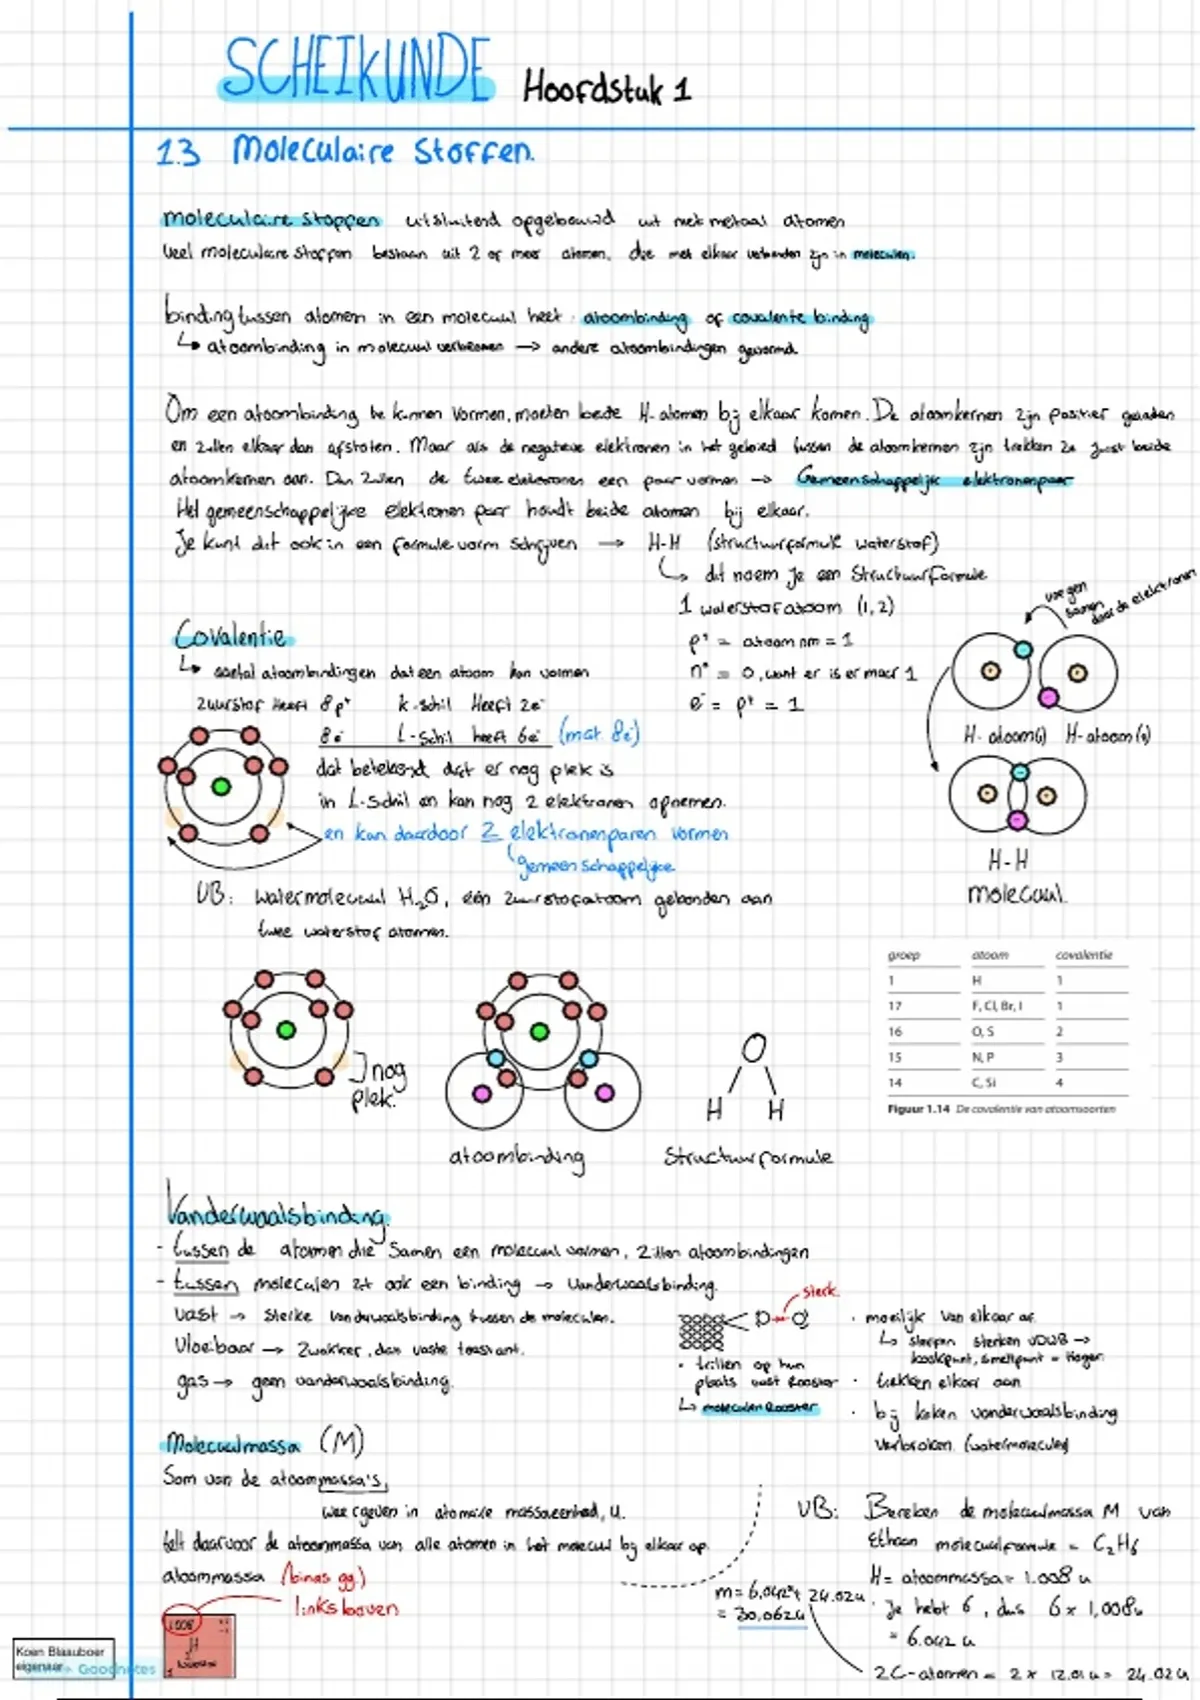 SCHEIKUNDE Hoofdstuk 1
1.3 Moleculaire Stoffen.
moleculaire stoffen uitsluitend opgebouwd uit niet metaal atomen
Veel moleculaire stoffen bestaan uit 2 of meer atomen, die met elkaar verbonden zijn in moleculen.
binding tussen atomen in een molecuul heet: atoombinding of covalente binding
↳ atoombinding in molecuul verbreken → andere atoombindingen gevormd.
Om een atoombinding te kunnen vormen, moeten beide H-atomen bij elkaar komen. De atoomkernen zijn positief geladen
en zullen elkaar dan afstoten. Maar als de negatieve elektronen in het gebied tussen de atoomkernen zijn trekken ze juist beide
atoomkernen aan. Dan zullen de twee elektronen een paar vormen → Gemeenschappelijk elektronenpaar
Het gemeenschappelijke elektronen paar houdt beide atomen bij elkaar.
Je kunt dit ook in een formule vorm schrijven → H-H (structuurformule waterstof)
↳ dit noem je een Structuurformule
1 waterstofatoom (1,2)
p⁺ = atoom nm = 1
n° = 0, want er is er maar 1
e⁻ = p⁺ = 1
voegen samen door de elektronen
H-atoom(1) H-atoom(1)
H-H
molecuul.
Covalentie
↳ aantal atoombindingen dat een atoom kan vormen
zuurstof heeft 8p⁺ k-schil Heeft 2e⁻
8e⁻ L-schil heeft 6e⁻ (mat 8e⁻)
dat betekend dat er nog plek is
in L-schil en kan nog 2 elektronen opnemen.
en kan daardoor 2 elektronenparen vormen
gemeenschappelijke
VB: Watermolecuul H₂O, één zuurstofatoom gebonden aan
twee waterstof atomen.
nog plek.
atoombinding
O
H H
Structuurformule
groep atoom covalentie
1 H 1
17 F, Cl, Br, I 1
16 O, S 2
15 N, P 3
14 C, Si 4
Figuur 1.14 De covalentie van atoomsoorten
Vanderwaalsbinding
- tussen de atomen die samen een molecuul vormen, zitten atoombindingen
- tussen moleculen zit ook een binding → Vanderwaalsbinding.
vast → sterke vanderwaalsbinding tussen de moleculen.
Vloeibaar → zwakker, dan vaste toestant.
gas → geen vanderwaalsbinding.
sterk
• trillen op hun
plaats vast Rooster
↳ moleculen Rooster
• moeilijk van elkaar af
↳ sterken VDWB →
kookpunt, smeltpunt = Hoger.
• trekken elkaar aan
• bij koken vanderwaalsbinding
verbroken. (watermolecule)
Molecuulmassa (M)
Som van de atoommassa's,
weergeven in atomaire massaeenheid, u.
telt daarvoor de atoommassa van alle atomen in het molecuul bij elkaar op.
atoommassa (binas 99.)
links boven
1.008
H
VB: Bereken de molecuulmassa M van
Ethaan molecuulformule = C₂H₆
H = atoommassa = 1.008 u
Je hebt 6, dus 6 x 1,008u
= 6.042 u
2C-atomen = 2 x 12.01 u = 24.02 u
m = 6,042 + 24.02u
= 30,062u
Koen Blaauboer
eigenaar
Goodnotes